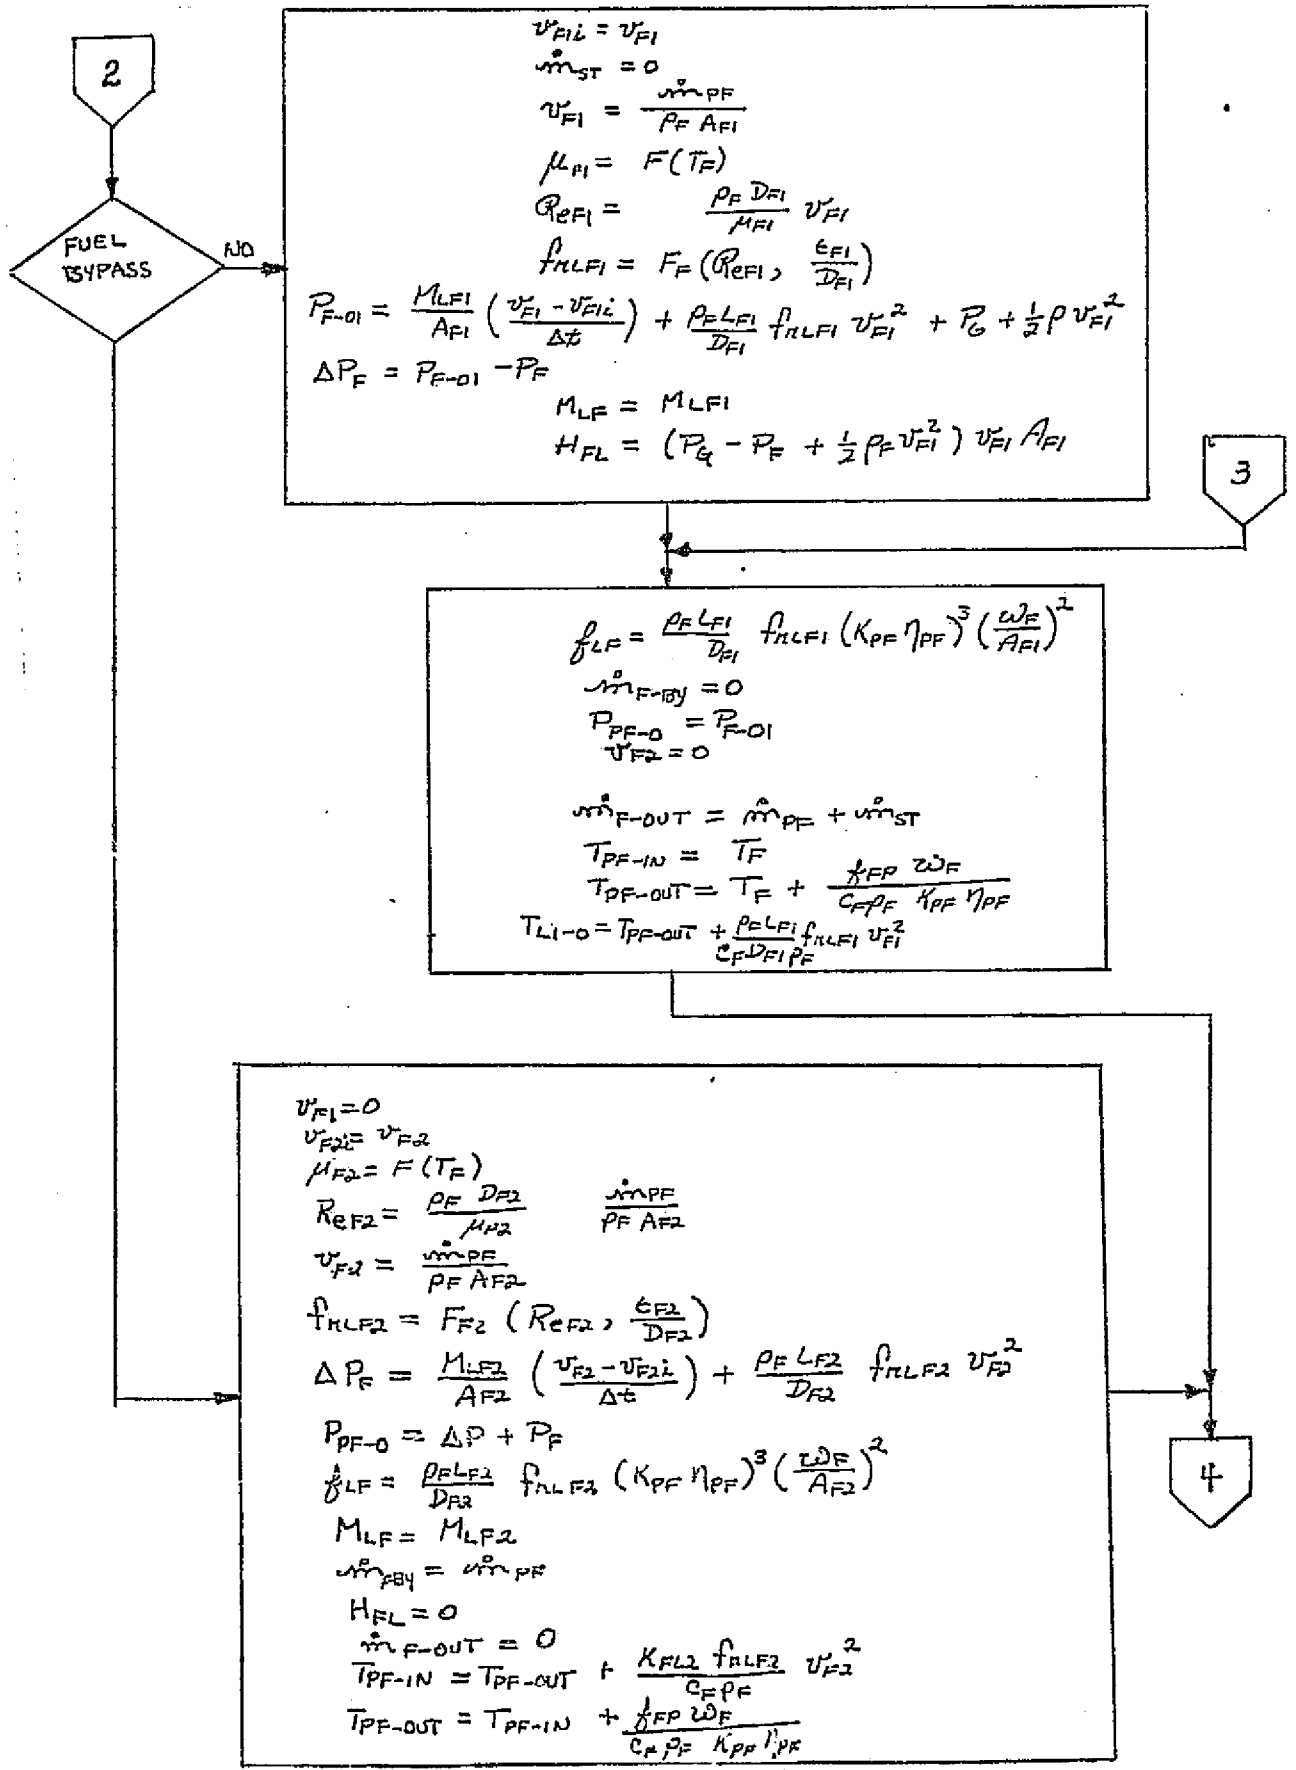 2
FUEL
BYPASS
NO
v_F1i = v_F1
ṁ_ST = 0
v_F1 = ṁ_PF / (ρ_F A_F1)
μ_F1 = F(T_F)
R_eF1 = (ρ_F D_F1 / μ_F1) v_F1
f_rLF1 = F_F (R_eF1, ε_F1 / D_F1)
P_F-01 = (M_LF1 / A_F1) ((v_F1 - v_F1i) / Δt) + (ρ_F L_F1 / D_F1) f_rLF1 v_F1² + P_G + ½ ρ v_F1²
ΔP_F = P_F-01 - P_F
M_LF = M_LF1
H_FL = (P_G - P_F + ½ ρ_F v_F1²) v_F1 A_F1
3
f_LF = (ρ_F L_F1 / D_F1) f_rLF1 (K_PF η_PF)³ (ω_F / A_F1)²
ṁ_F-BY = 0
P_PF-0 = P_F-01
v_F2 = 0
ṁ_F-OUT = ṁ_PF + ṁ_ST
T_PF-IN = T_F
T_PF-OUT = T_F + (f_FP ω_F) / (C_F ρ_F K_PF η_PF)
T_L1-0 = T_PF-OUT + (ρ_F L_F1 / (C_F D_F1 ρ_F)) f_rLF1 v_F1²
v_F1 = 0
v_F2i = v_F2
μ_F2 = F(T_F)
R_eF2 = (ρ_F D_F2 / μ_F2) ṁ_PF / (ρ_F A_F2)
v_F2 = ṁ_PF / (ρ_F A_F2)
f_rLF2 = F_F2 (R_eF2, ε_F2 / D_F2)
ΔP_F = (M_LF2 / A_F2) ((v_F2 - v_F2i) / Δt) + (ρ_F L_F2 / D_F2) f_rLF2 v_F2²
P_PF-0 = ΔP + P_F
f_LF = (ρ_F L_F2 / D_F2) f_rLF2 (K_PF η_PF)³ (ω_F / A_F2)²
M_LF = M_LF2
ṁ_FBY = ṁ_PF
H_FL = 0
ṁ_F-OUT = 0
T_PF-IN = T_PF-OUT + (K_FL2 f_rLF2 / (C_F ρ_F)) v_F2²
T_PF-OUT = T_PF-IN + (f_FP ω_F) / (C_F ρ_F K_PF η_PF)
4